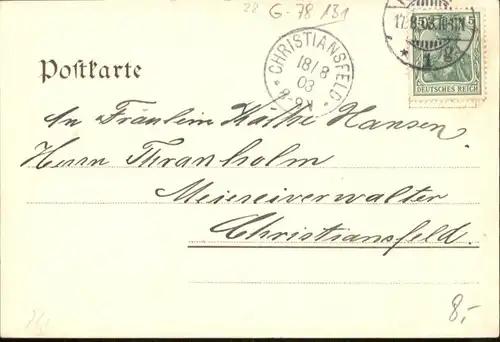 28 G-78 /31
17.8.03.10-11N.
* 1 g
5 5
DEUTSCHES REICH
* CHRISTIANSFELD *
18/8
03
8-9V
Postkarte
An Fräulein Käthe Hansen
Herrn Thranholm
Meiereiverwalter
Christiansfeld.
8,-